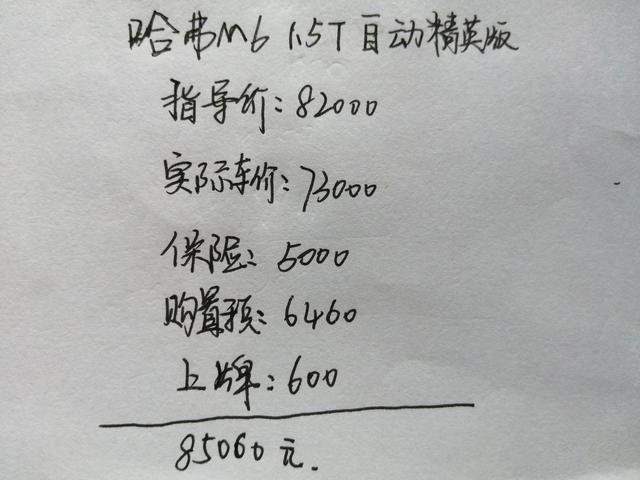 哈弗M6 1.5T自动精英版
指导价:82000
实际车价:73000
保险:5000
购置税:6460
上牌:600
85060元.